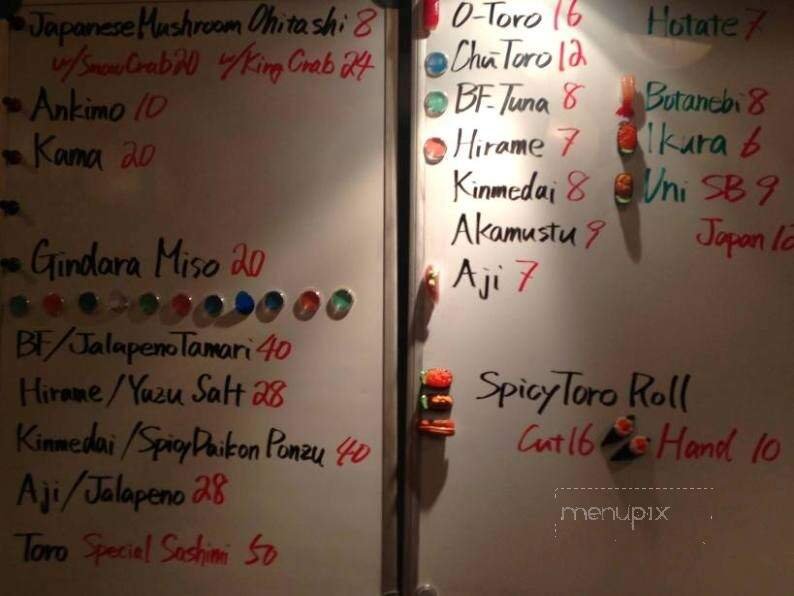 Japanese Mushroom Ohitashi 8
w/Snow Crab 20 w/King Crab 24
Ankimo 10
Kama 20
Gindara Miso 20
BF/Jalapeno Tamari 40
Hirame/Yuzu Salt 28
Kinmedai/Spicy Daikon Ponzu 40
Aji/Jalapeno 28
Toro Special Sashimi 50
O-Toro 16
Chū Toro 12
BF-Tuna 8
Hirame 7
Kinmedai 8
Akamustu 9
Aji 7
Hotate 7
Botanebi 8
Ikura 6
Uni SB 9
Japan
Spicy Toro Roll
Cut 16 Hand 10
menupix